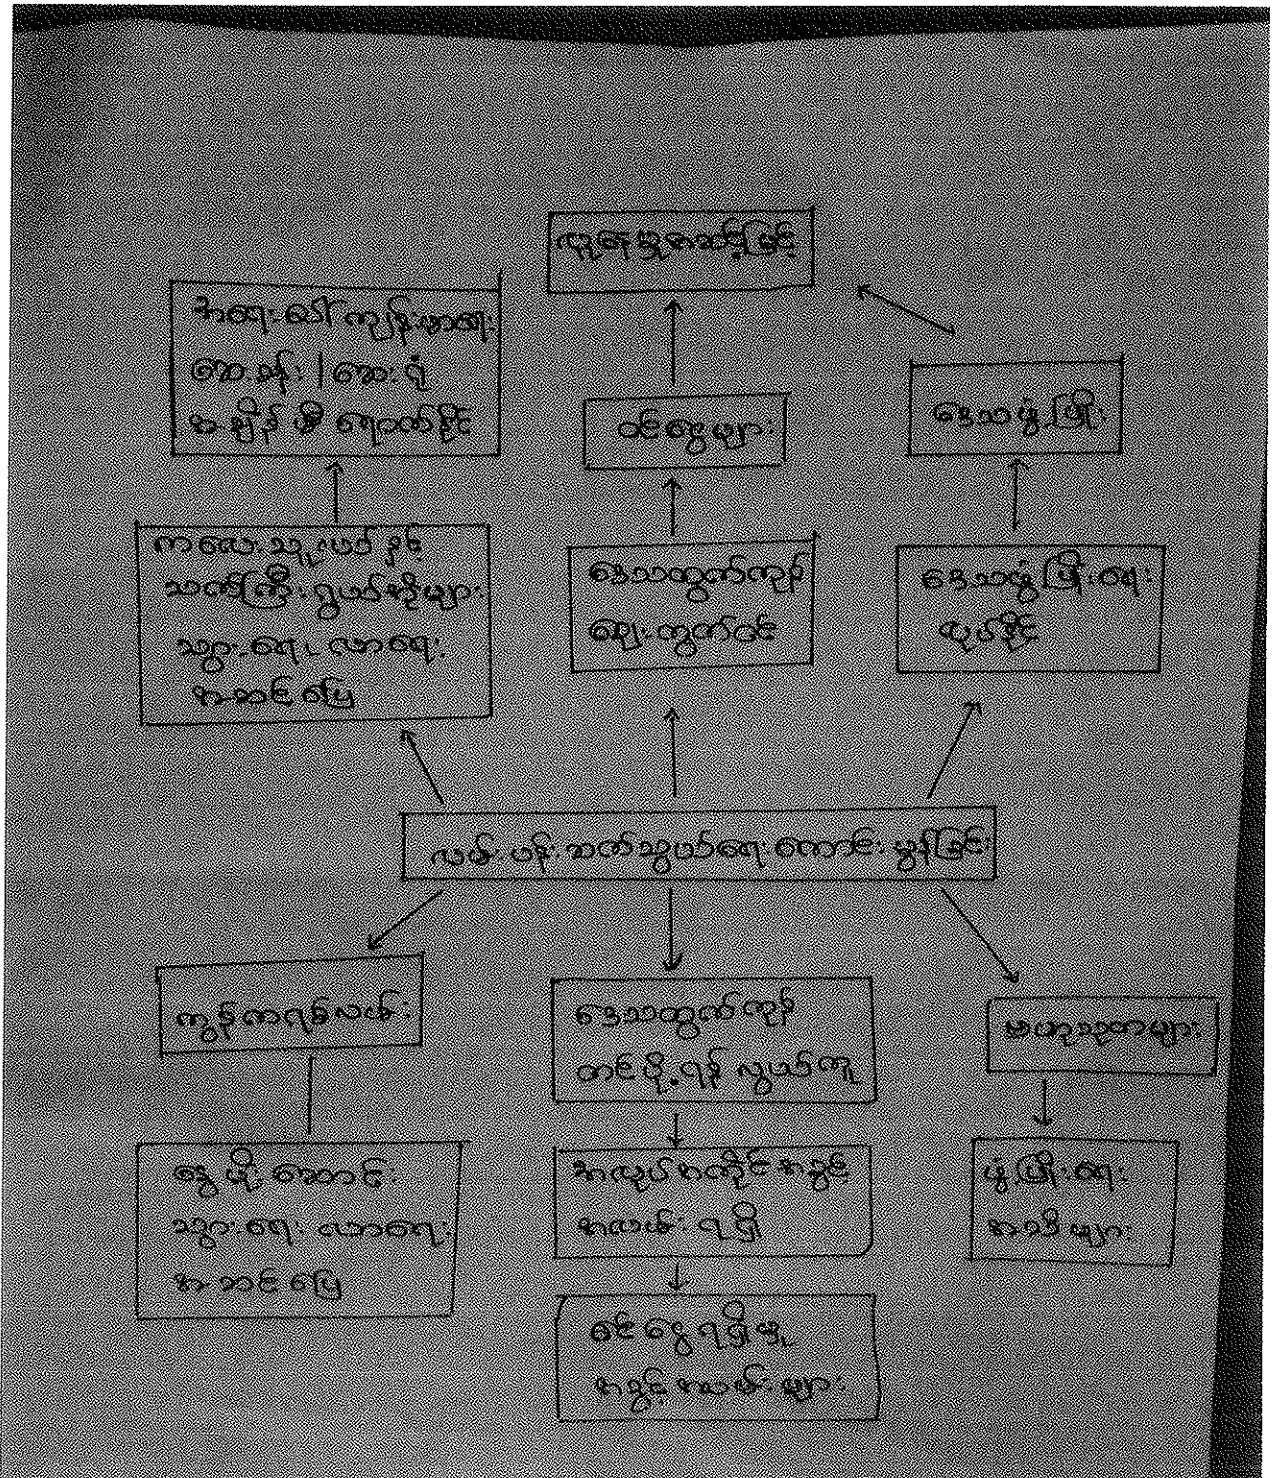 လူနေမှုအဆင့်မြင့်
အရေးပေါ် ကျန်းမာရေး
ဆေးခန်း / ဆေးရုံ
အချိန်မီ ရောက်နိုင်
ဝင်ငွေများ
ဒေသဖွံ့ဖြိုး
ကလေးသူငယ်နှင့်
သက်ကြီးရွယ်အိုများ
သွားရေး လာရေး
အဆင်ပြေ
ဒေသထွက်ကုန်
ဈေးကွက်ဝင်
ဒေသဖွံ့ဖြိုးရေး
လုပ်နိုင်
လမ်းပန်းဆက်သွယ်ရေး ကောင်းမွန်ခြင်း
ကွန်ကရစ်လမ်း
ဒေသထွက်ကုန်
တင်ပို့ရန် လွယ်ကူ
ဗဟုသုတများ
နွေ မိုး ဆောင်း
သွားရေး လာရေး
အဆင်ပြေ
အလုပ်အကိုင် အခွင့်
အလမ်း ရရှိ
ဖွံ့ဖြိုးရေး
အသိများ
ဝင်ငွေရရှိမှု
အခွင့်အလမ်းများ